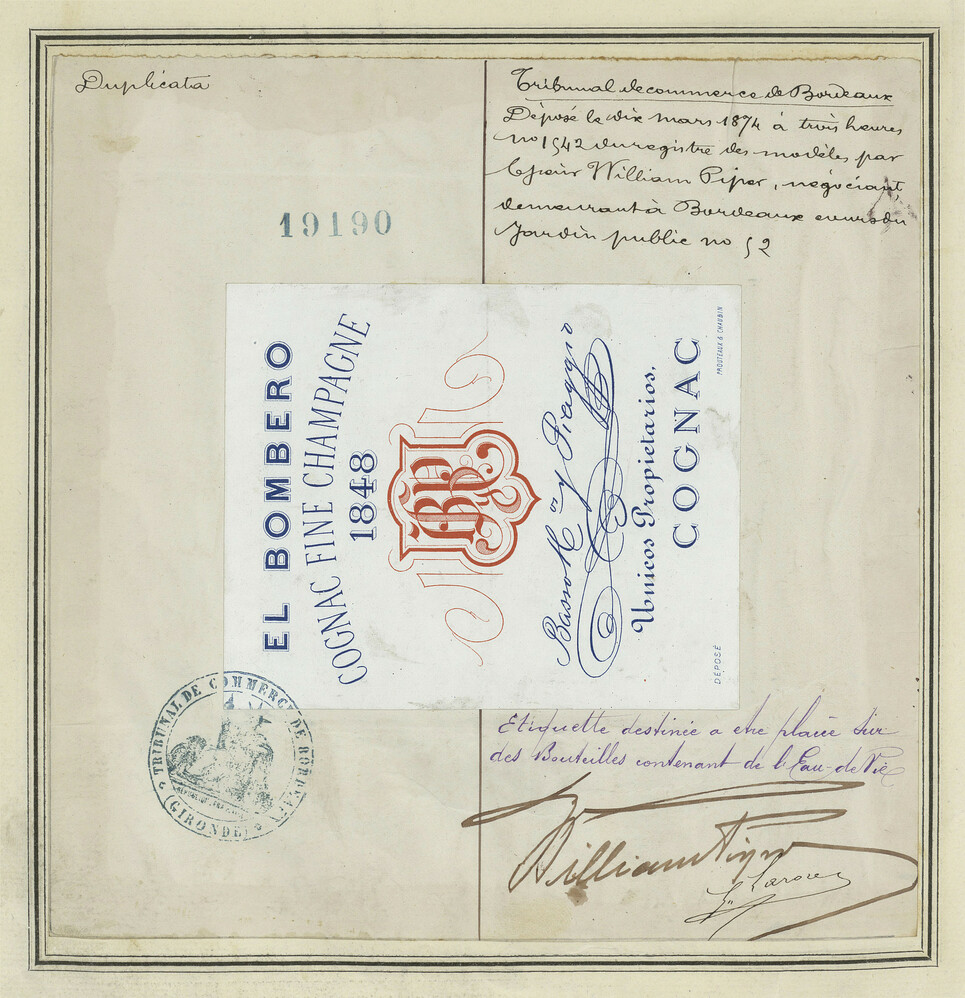 Duplicata
Tribunal de commerce de Bordeaux
Déposé le dix mars 1874 à trois heures
no 1542 du registre des modèles par
le sieur William Piper, négociant,
demeurant à Bordeaux cours du
Jardin public no 52
19190
EL BOMBERO
COGNAC FINE CHAMPAGNE
1848
Basso H<sup>os</sup> y Piaggio
Unicos Propietarios,
COGNAC
PROUTEAUX & CHAUBIN
DÉPOSÉ
TRIBUNAL DE COMMERCE DE BORDEAUX
(GIRONDE)
Etiquette destinée a etre placée sur
des Bouteilles contenant de l'Eau-de-Vie
William Piper